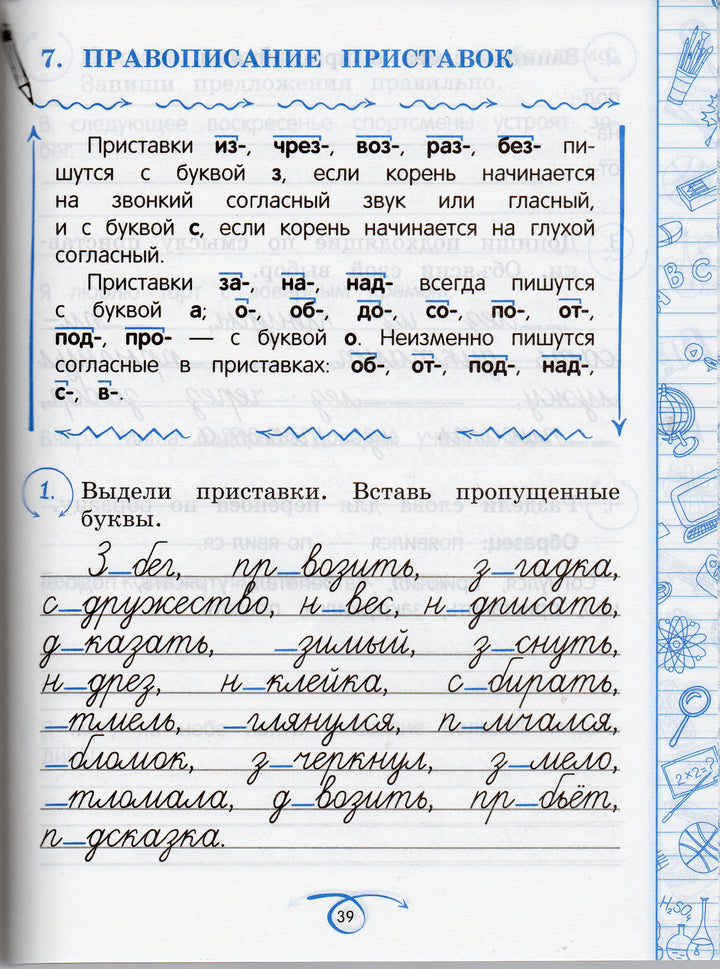 7. ПРАВОПИСАНИЕ ПРИСТАВОК
Приставки из-, чрез-, воз-, раз-, без- пи-
шутся с буквой з, если корень начинается
на звонкий согласный звук или гласный,
и с буквой с, если корень начинается на глухой
согласный.
Приставки за-, на-, над- всегда пишутся
с буквой а; о-, об-, до-, со-, по-, от-,
под-, про- — с буквой о. Неизменно пишутся
согласные в приставках: об-, от-, под-, над-,
с-, в-.
1. Выдели приставки. Вставь пропущенные
буквы.
З_бег, пр_возить, з_гадка,
с_дружество, н_вес, н_дписать,
д_казать, _зимый, з_снуть,
н_дрез, н_клейка, с_бирать,
_тмель, _глянулся, п_мчался,
_бломок, з_черкнул, з_мело,
_тломала, д_возить, пр_бьёт,
п_дсказка.
39
A B C
2×2=?
H₂SO₄